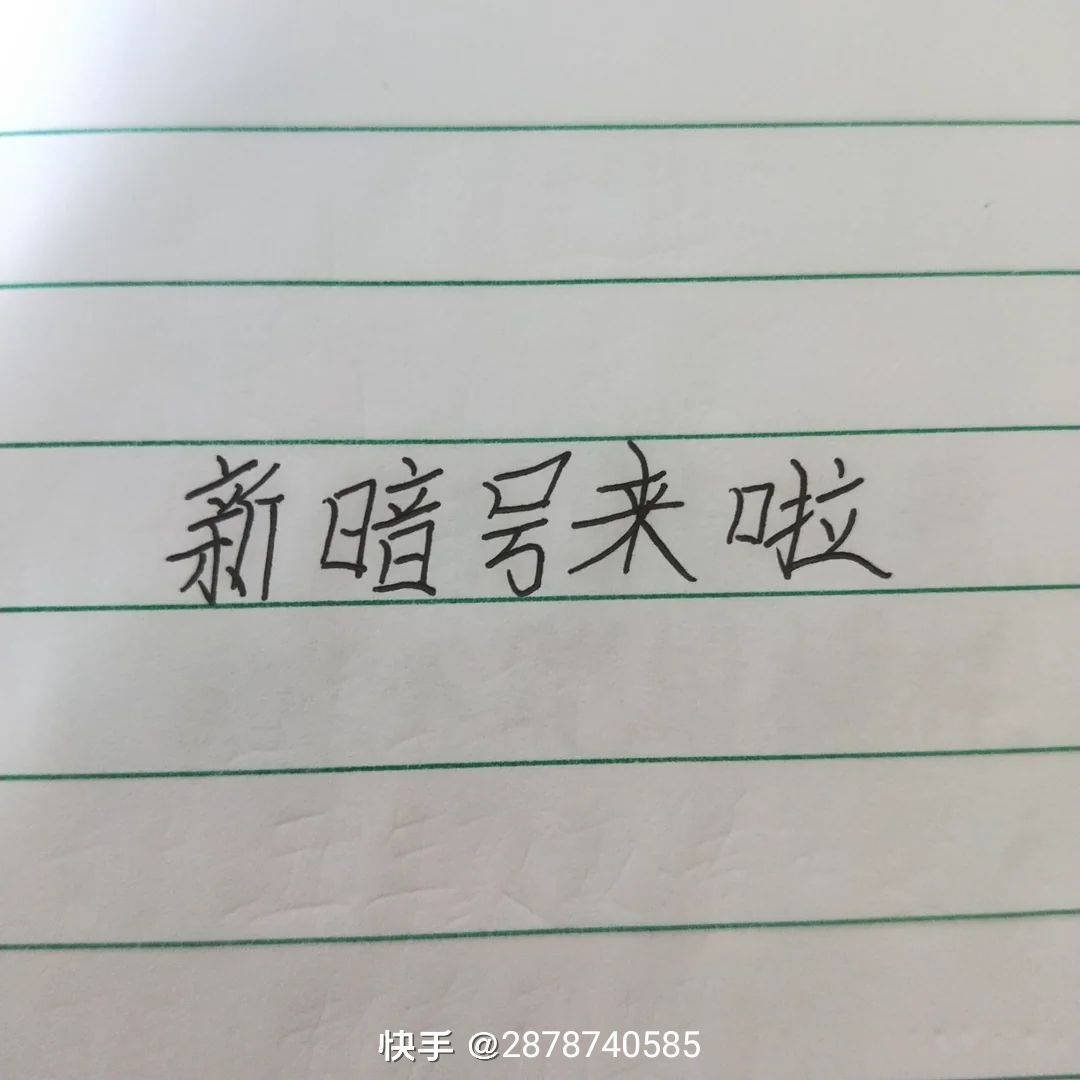 新暗号来啦
快手 @2878740585